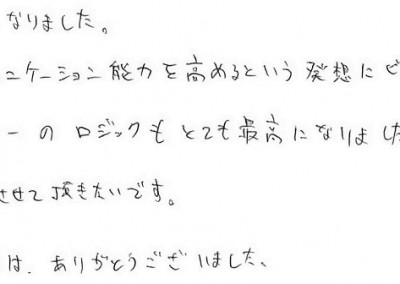 なりました。
ュニケーション能力を高めるという発想にビ
ーのロジックもとても最高になりました
させて頂きたいです。
は、ありがとうございました、